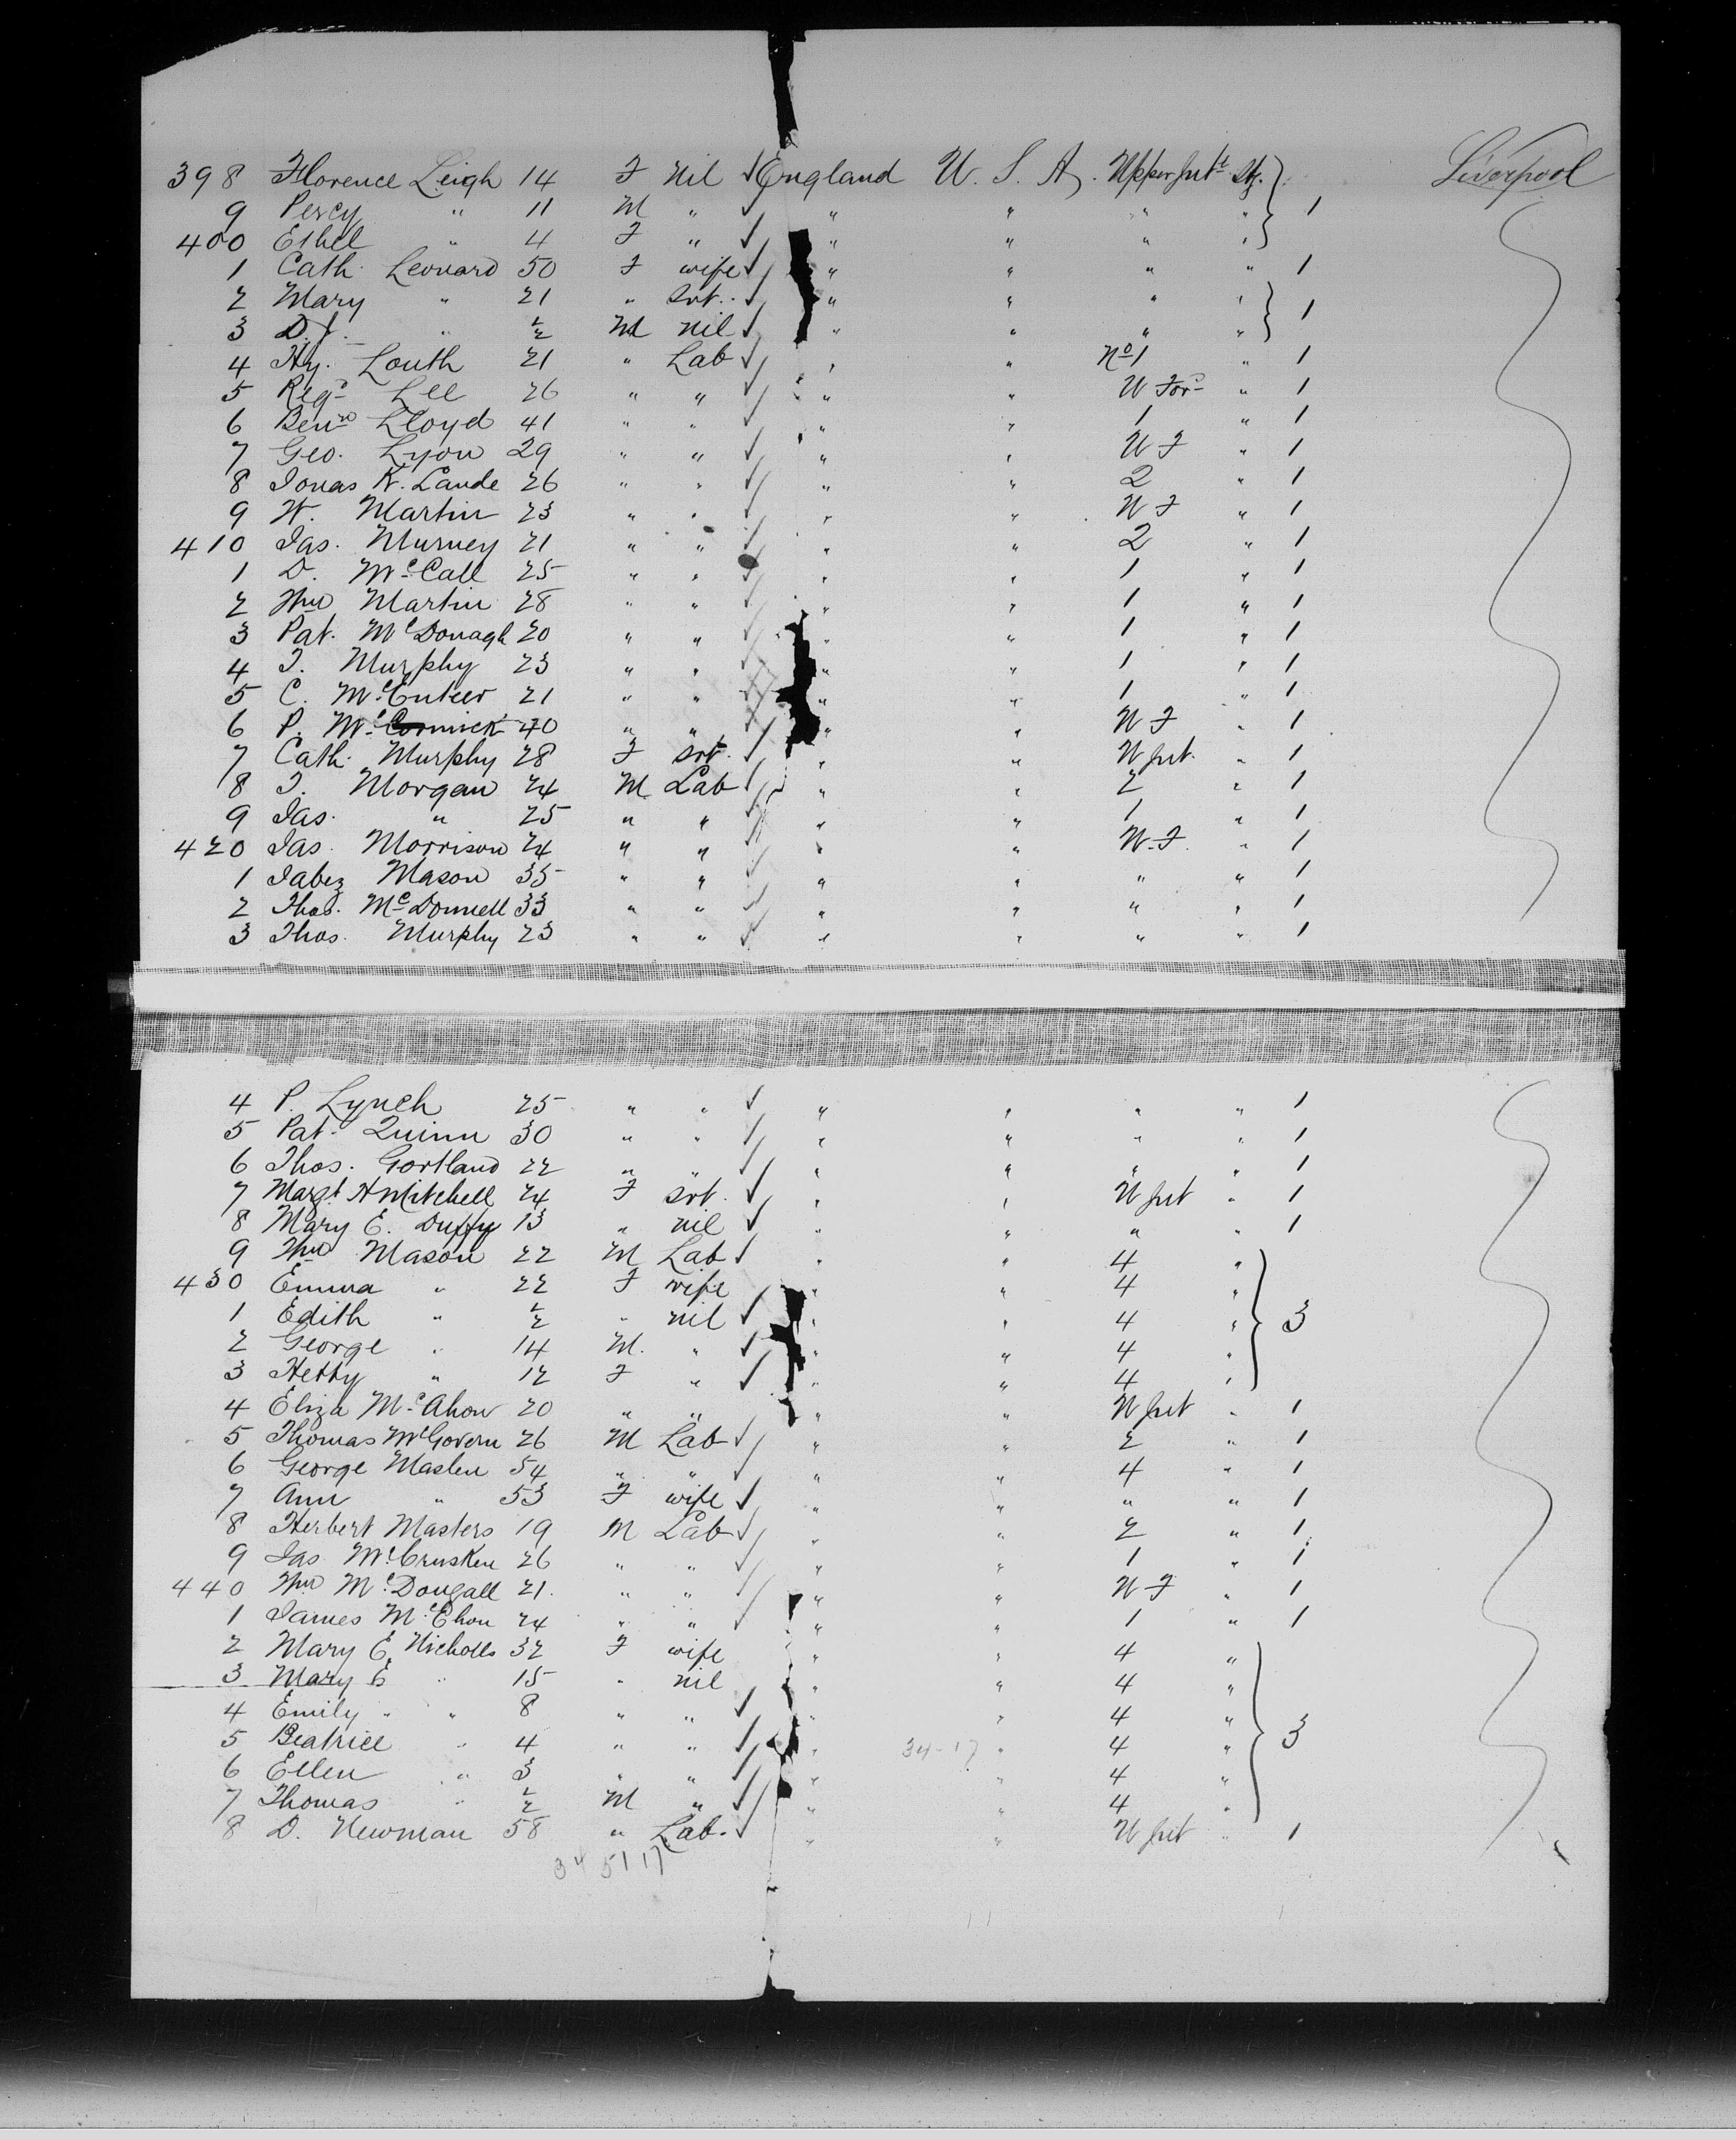 398 Florence Leigh 14 F Nil √ England U. S. A. Upper Int^t Stg. Liverpool
9 Percy " 11 M " √ " " " " 1
400 Ethel " 4 F " √ " " " "
1 Cath. Leonard 50 F wife √ " " " " 1
2 Mary " 21 " Svt. √ " " " " 1
3 D.J. " ½ M nil √ " " " "
4 Hy. Louth 21 " Lab √ " " No 1 " 1
5 Reg^d Lee 26 " " √ " " U For^d " 1
6 Benⁿ Lloyd 41 " " √ " " 1 " 1
7 Geo. Lyon 29 " " √ " " U F " 1
8 Jonas K. Lande 26 " " √ " " 2 " 1
9 W. Martin 23 " " √ " " U F " 1
410 Jas. Murney 21 " " √ " " 2 " 1
1 D. McCall 25 " " √ " " 1 " 1
2 Wm Martin 28 " " √ " " 1 " 1
3 Pat. McDonagh 20 " " √ " " 1 " 1
4 T. Murphy 23 " " √ " " 1 " 1
5 C. McEnteer 21 " " " " 1 " 1
6 P. McCormick 40 " " " " U F " 1
7 Cath. Murphy 28 F Svt. √ " " U Int. " 1
8 T. Morgan 24 M Lab √ " " 2 " 1
9 Jas. " 25 " " √ " " 1 " 1
420 Jas. Morrison 24 " " √ " " U.F. " 1
1 Jabez Mason 35 " " √ " " " " 1
2 Thos. McDonnell 33 " " √ " " " " 1
3 Thos. Murphy 23 " " √ " " " " 1
4 P. Lynch 25 " " √ " " " " 1
5 Pat. Quinn 30 " " √ " " " " 1
6 Thos. Gortland 22 " " √ " " " " 1
7 Margt A Mitchell 24 F Svt. √ " " U Int " 1
8 Mary E. Duffy 13 " nil √ " " " " 1
9 Wm Mason 22 M Lab √ " " 4 "
430 Emma " 22 F wife " " 4 "
1 Edith " ½ " nil √ " " 4 " 3
2 George " 14 M. " √ " " 4 "
3 Hetty " 12 F " √ " " 4 "
4 Eliza McAhon 20 " " " " U Int " 1
5 Thomas McGovern 26 M Lab √ " " 2 " 1
6 George Maslen 54 " " √ " " 4 " 1
7 Ann " 53 F wife √ " " " " 1
8 Herbert Masters 19 M Lab √ " " 2 " 1
9 Jas. McCrusken 26 " " √ " " 1 " 1
440 Wm McDougall 21. " " √ " " U F " 1
1 James McEhon 24 " " √ " " 1 " 1
2 Mary E. Nicholls 32 F wife " " 4 "
3 Mary E " 15 " nil " " 4 "
4 Emily " " 8 " " √ " " 4 "
5 Beatrice " 4 " " √ " 34-17 " 4 " 3
6 Ellen " 3 " " √ " " 4 "
7 Thomas " ½ M " √ " " 4 "
8 D. Newman 58 " Lab. √ " " U Int " 1
34 51 17